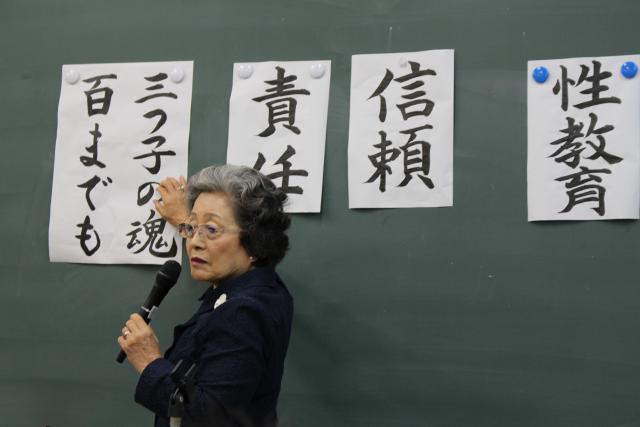 性教育
信頼
責任
三つ子の魂
百までも